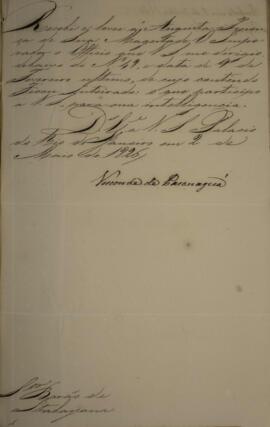 Recebi e levei á Augusta Presen
ça de Sua Magestade o Impe
rador o Officio que V. S. me dirigio
debaixo do Nº 49, e data de 4 de
Fevereiro ultimo, de cujo conteudo
Ficou Inteirado: o que participo
a V. S. para sua intelligencia.
D.s G.e a V. S. Palacio
do Rio de Janeiro em 2 de
Maio de 1826
Visconde de Paranaguá
Snr. Barão de
Itabayana